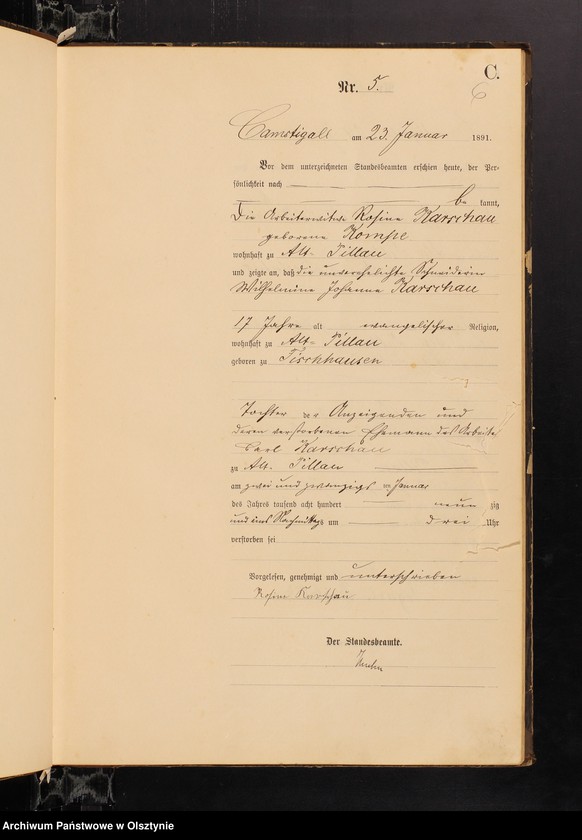 C.
6
Nr. 5.
Camstigall am 23. Januar 1891.
Vor dem unterzeichneten Standesbeamten erschien heute, der Per-
sönlichkeit nach
be kannt,
die Arbeiterwitwe Rosine Karschau
geborene Kompe
wohnhaft zu Alt-Pillau
und zeigte an, daß die unverehelichte Schneiderin
Wilhelmine Johanne Karschau
17 Jahre alt evangelischer Religion,
wohnhaft zu Alt-Pillau
geboren zu Fischhausen
Tochter der Anzeigenden und
deren verstorbenen Ehemann des Arbeiter
Carl Karschau
zu Alt-Pillau
am zwei und zwanzigs ten Januar
des Jahres tausend acht hundert neun zig
und eins Nachmittags um drei Uhr
verstorben sei
Vorgelesen, genehmigt und unterschrieben
Rosine Karschau
Der Standesbeamte.
Archiwum Państwowe w Olsztynie